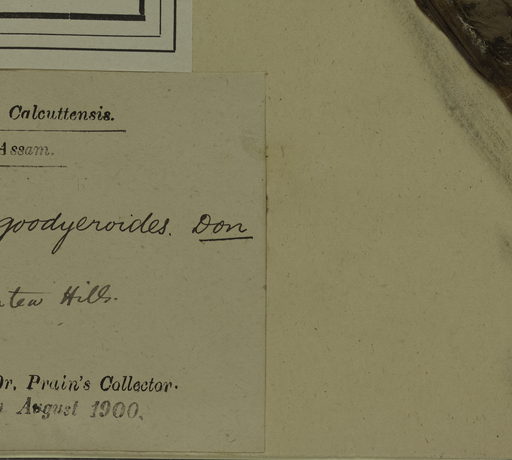 Calcuttensis.
Assam.
goodyeroides. Don
Hills.
Dr. Prain's Collector.
August 1900.